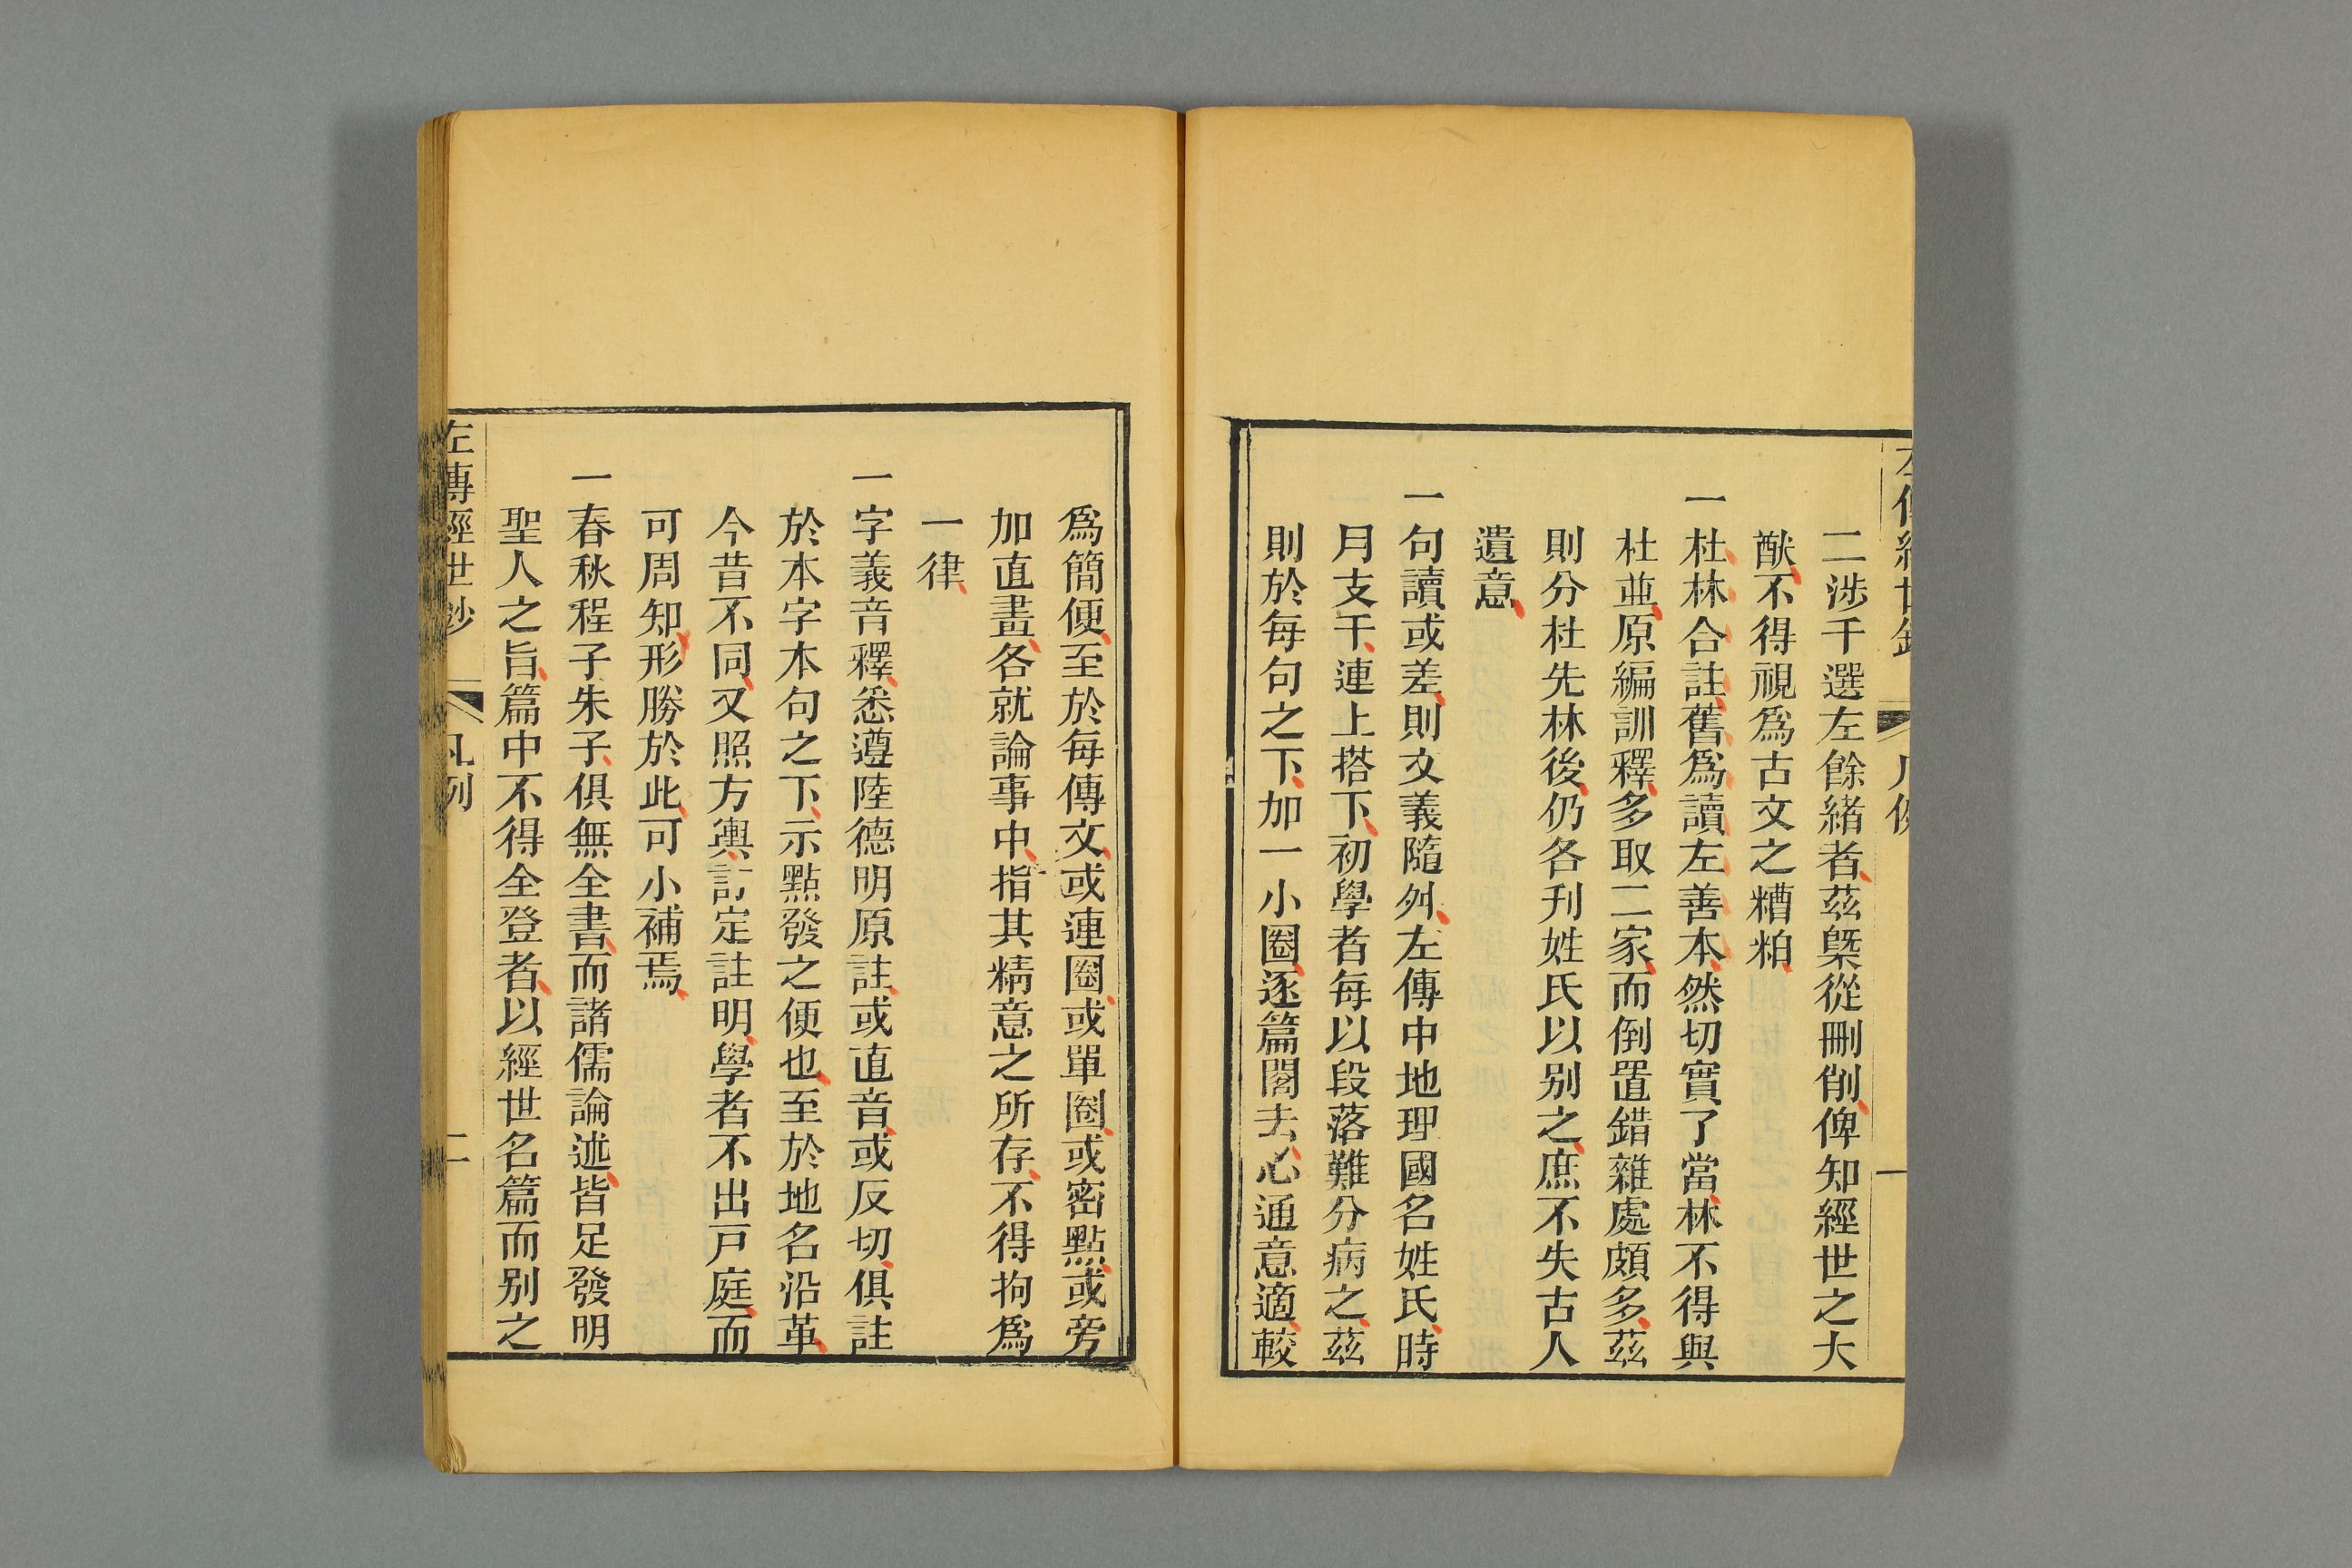 二涉千選左餘緒者茲槩從刪削俾知經世之大
猷不得視爲古文之糟粕
一杜林合註舊爲讀左善本然切實了當林不得與
杜並原編訓釋多取二家而倒置錯雜處頗多茲
則分杜先林後仍各刊姓氏以别之庶不失古人
遺意
一句讀或差則文義隨舛左傳中地理國名姓氏時
月支干連上搭下初學者每以段落難分病之茲
則於每句之下加一小圈逐篇閱去心通意適較
爲簡便至於每傳文或連圈或單圈或密點或旁
加直畫各就論事中指其精意之所存不得拘爲
一律
一字義音釋悉遵陸德明原註或直音或反切俱註
於本字本句之下示點發之便也至於地名沿革
今昔不同又照方輿訂定註明學者不出戸庭而
可周知形勝於此可小補焉
一春秋程子朱子俱無全書而諸儒論述皆足發明
聖人之旨篇中不得全登者以經世名篇而别之
左傳經世鈔 凡例 二